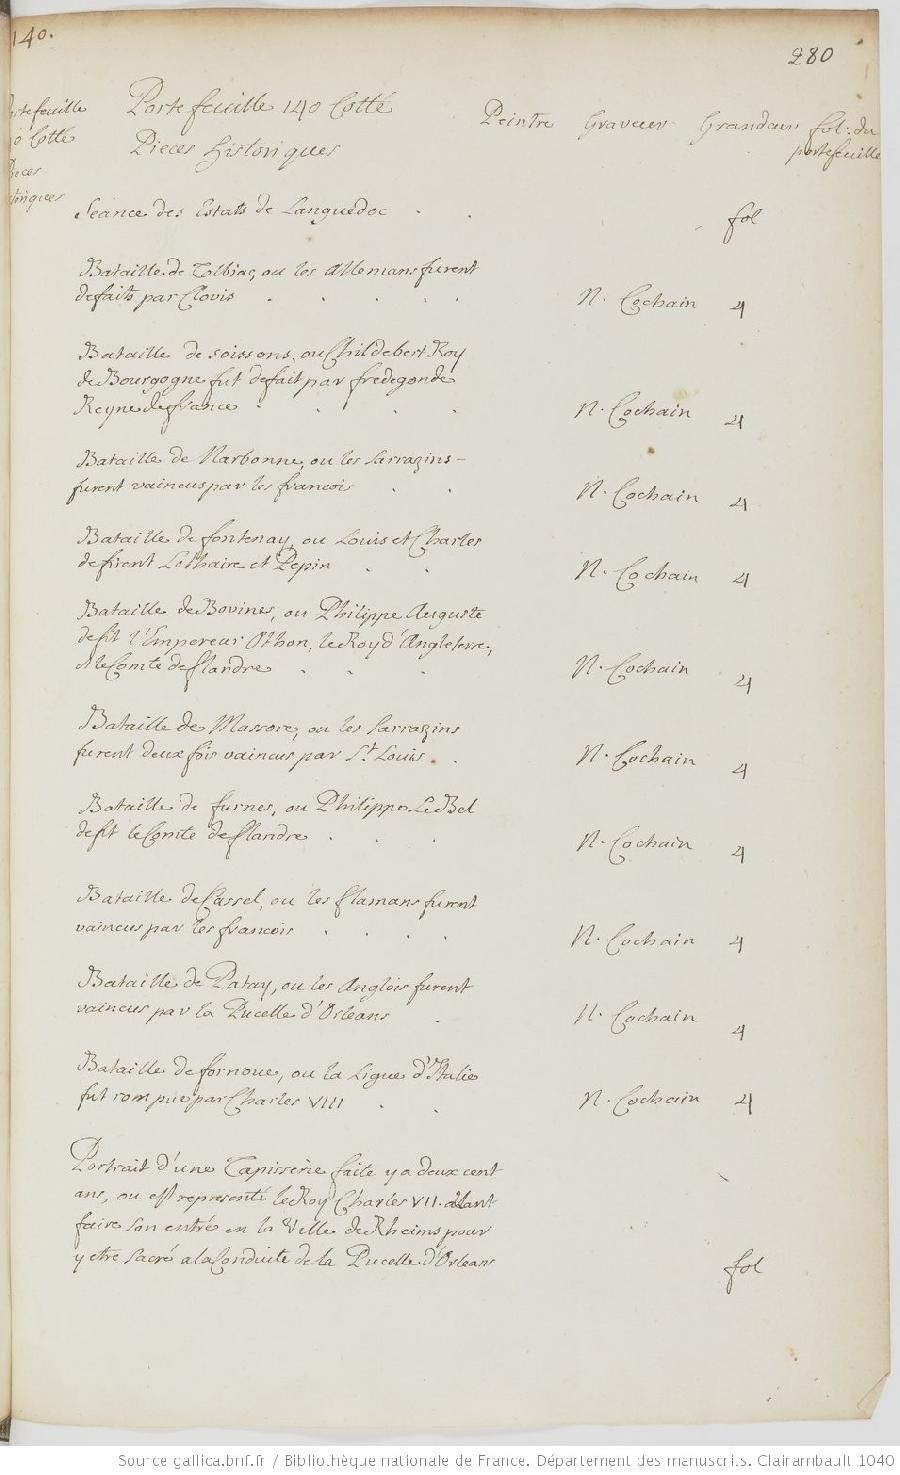 140.
280
Portefeuille 140 Cotté
Pieces Historiques
Peintre Graveur Grandeur fol: du
portefeuille
Seance des Estats de Languedoc . . fol
Bataille de Tolbiac, ou les Allemans furent
defaits par Clovis . . . . . N. Cochain 4
Bataille de soissons, ou Childebert Roy
de Bourgogne fut defait par fredegonde
Reyne de france . . . . N. Cochain 4
Bataille de Narbonne, ou les Sarrazins-
furent vaincus par les francois . . N. Cochain 4
Bataille de fontenay, ou Louis et Charles
defirent Lothaire et Pepin . . N. Cochain 4
Bataille de Bovines, ou Philippe Auguste
defit l'Empereur Othon, le Roy d'Angleterre,
et le Comte de flandre . . . N. Cochain 4
Bataille de Massore, ou les Sarrazins
furent deux fois vaincus par St. Louis . . N. Cochain 4
Bataille de furnes, ou Philippe Le Bel
defit le Comte de flandre . . . N. Cochain 4
Bataille de Cassel, ou les flamans furent
vaincus par les francois . . . . N. Cochain 4
Bataille de Patay, ou les Anglois furent
vaincus par la Pucelle d'Orleans . N. Cochain 4
Bataille de fornoue, ou la Ligue d'Italie
fut rompue par Charles VIII . . N. Cochain 4
Portrait d'une Tapisserie faite y a deux cent
ans, ou est representé le Roy Charles VII. alant
faire son entré en la Ville de Rheims pour
y etre sacré a la Conduite de la Pucelle d'Orleans fol
Source gallica.bnf.fr / Bibliothèque nationale de France. Département des manuscrits. Clairambault 1040